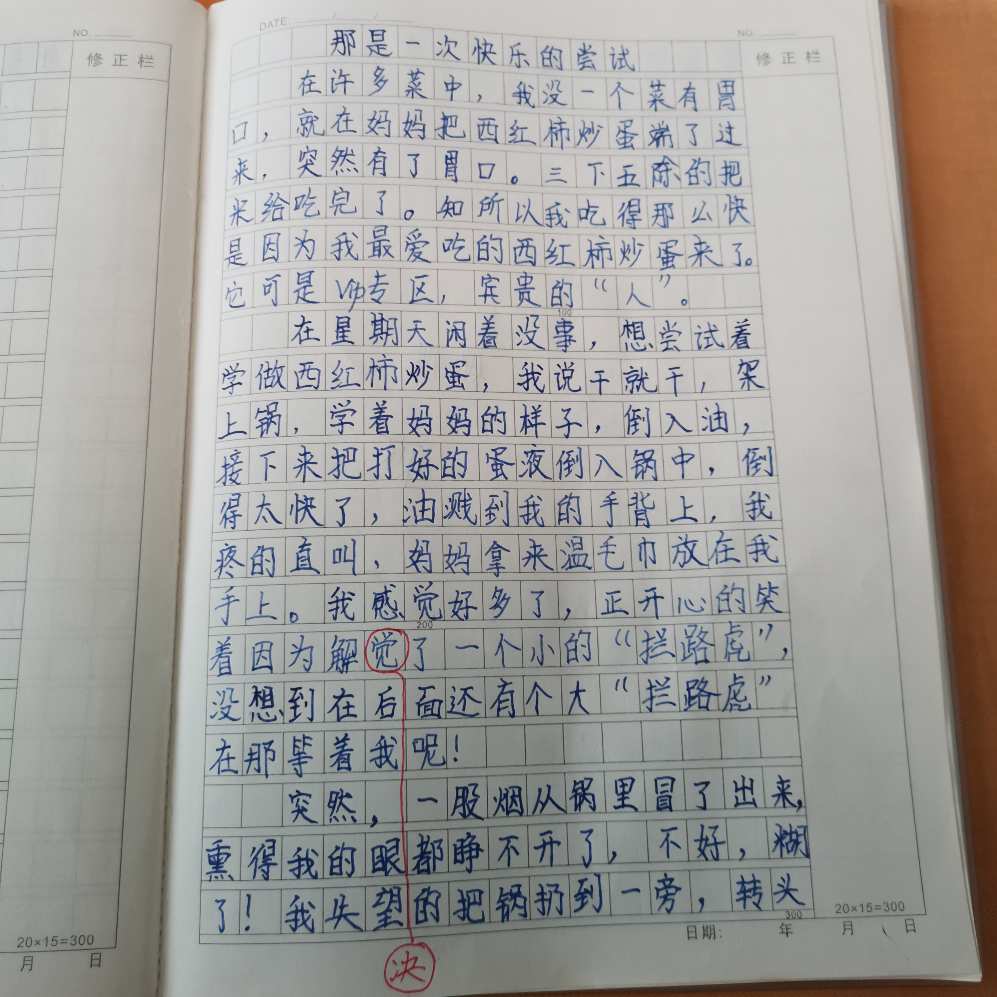 DATE
NO.
NO.
修正栏
修正栏
那是一次快乐的尝试
在许多菜中，我没一个菜有胃
口，就在妈妈把西红柿炒蛋端了过
来，突然有了胃口。三下五除的把
米给吃完了。知所以我吃得那么快
是因为我最爱吃的西红柿炒蛋来了。
它可是vip专区，宾贵的“人”。
100
在星期天闲着没事，想尝试着
学做西红柿炒蛋，我说干就干，架
上锅，学着妈妈的样子，倒入油，
接下来把打好的蛋液倒入锅中，倒
得太快了，油溅到我的手背上，我
疼的直叫，妈妈拿来温毛巾放在我
手上。我感觉好多了，正开心的笑
200
着因为解觉了一个小的“拦路虎”，
没想到在后面还有个大“拦路虎”
在那等着我呢！
突然，一股烟从锅里冒了出来，
熏得我的眼都睁不开了，不好，糊
了！我失望的把锅扔到一旁，转头
300
决
20×15=300
月 日
日期： 年 月 日
20×15=300